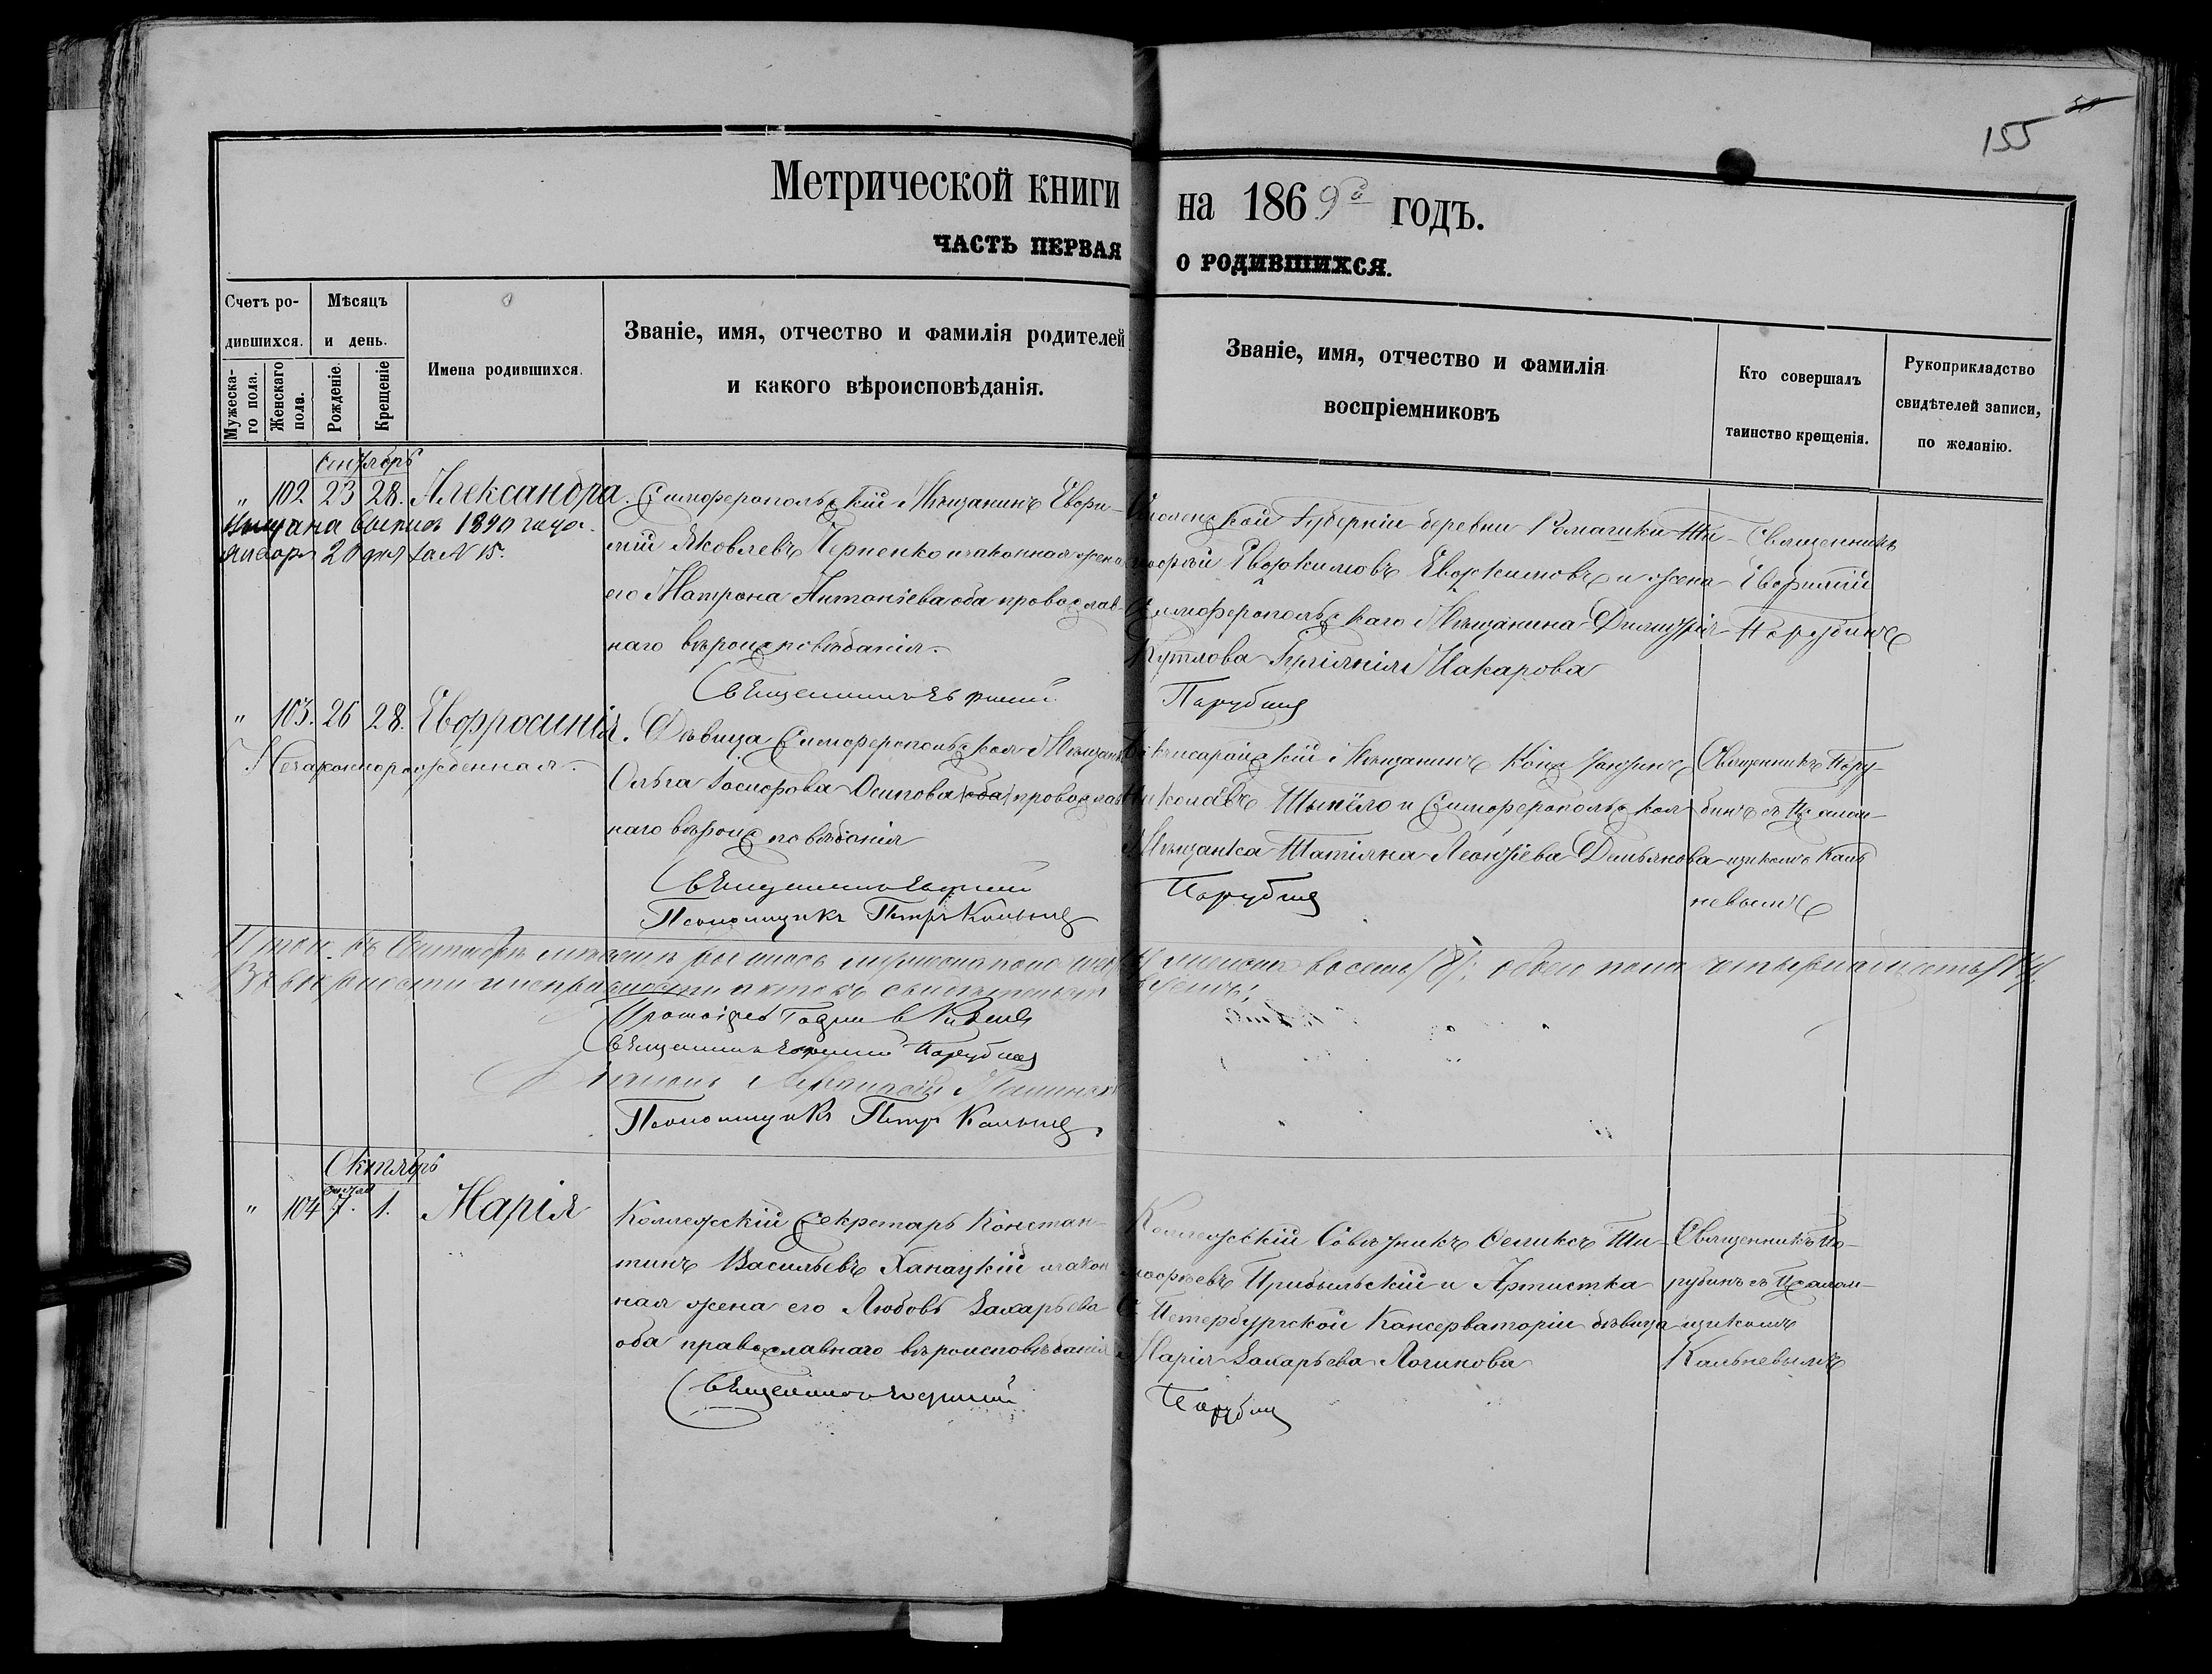 155
Метрической книги на 1869й годъ.
ЧАСТЬ ПЕРВАЯ О РОДИВШИХСЯ.
Счетъ родившихся.
Мужескаго пола.
Женскаго пола.
Мѣсяцъ и день.
Рожденіе.
Крещеніе
Имена родившихся.
Званіе, имя, отчество и фамилія родителей
и какого вѣроисповѣданія.
Званіе, имя, отчество и фамилія
воспріемниковъ
Кто совершалъ
таинство крещенія.
Рукоприкладство
свидѣтелей записи,
по желанію.
Сентябрь
" 102 23 28. Александра.
выпись 1890 года
января 20 дня за N 15.
Симферопольскій Мѣщанинъ Евѳи-
мій Яковлевъ Черненко и законная жена
его Матрона Антоніева оба православ-
наго вѣроисповѣданія.
Священникъ Евѳимій
Смоленской Губерніи деревни Ти-
моѳей Евѳкимовъ Евѳкимовъ и жена
Симферопольскаго Мѣщанина Димитрія
Кутлова Макарова
Парубинъ
Священникъ
Евѳимій
Парубинъ
" 103. 26 28. Евфросинія.
Незаконнорожденная.
Дѣвица Симферопольская Мѣщанка
Ольга Іосифова Осипова (оба) православ-
наго вѣроисповѣданія
Священникъ Евѳимій
Псаломщикъ Петръ Кальневъ
Бахчисарайскій Мѣщанинъ Константинъ
Николаевъ и Симферопольская
Мѣщанка Татіяна Леонтіева Демьянова
Парубинъ
Священникъ Пару-
бинъ съ Псалом-
щикомъ Каль-
невымъ
Итого въ Сентябрѣ мѣсяцѣ родилось мужеска пола женска восемь /8/; обоего пола четырнадцать /14/.
Протоіерей
Священникъ Евѳимій Парубинъ
Псаломщикъ Петръ Кальневъ
Октябрь
" 104 7. 1. Марія
Коллежскій Секретарь Констан-
тинъ Васильевъ Ханацкій и закон-
ная жена его Любовь Захарьева
оба православнаго вѣроисповѣданія
Священникъ Евѳимій
Коллежскій Совѣтникъ Феликсъ Ти-
моѳеевъ Прибыльскій и Артистка
С. Петербургской Консерваторіи дѣвица
Марія Захарьева Логинова
Парубинъ
Священникъ Па-
рубинъ съ Псалом-
щикомъ
Кальневымъ